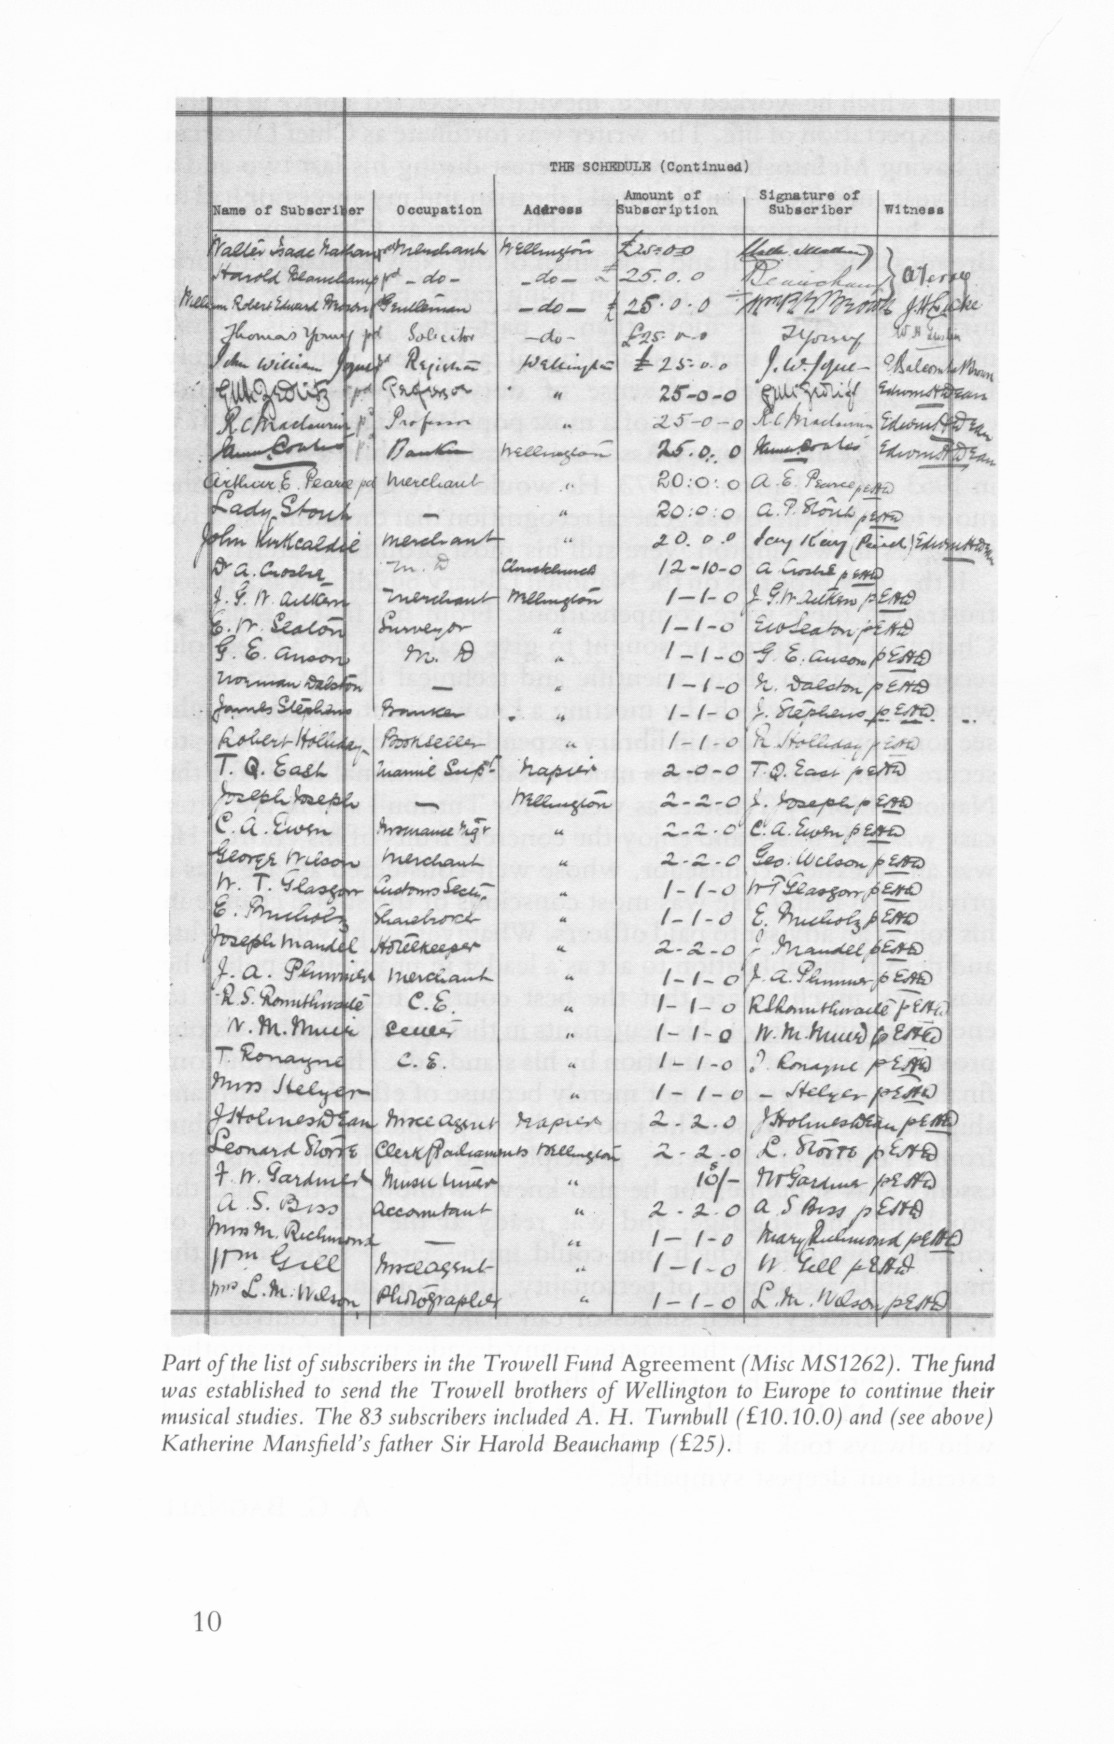 THE SCHEDULE (Continued)
Name of Subscriber Occupation Address Amount of Subscription Signature of Subscriber Witness
Walter Isaac Nathan pd Merchant Wellington £25.0.0
Harold Beauchamp pd -do- -do- £25.0.0 Beauchamp
William Robert Edward Gentleman -do- £25.0.0
Thomas Young pd Solicitor -do- £25.0.0 T Young
John William Joynt pd Registrar Wellington £25.0.0 J. W. Joynt
pd Professor " 25-0-0 Edwin H Dean
R C Maclaurin pd Professor " 25-0-0 R C Maclaurin Edwin H Dean
James Coates pd Banker Wellington 25.0.0 James Coates Edwin H Dean
Arthur E. Pearce pd Merchant " 20:0:0 A. E. Pearce p EHD
Lady Stout — " 20:0:0 A. P. Stout p EHD
John Kirkcaldie Merchant " 20.0.0 Edwin H Dean
Dr A. Crosbie M. D Christchurch 12-10-0 A Crosbie p EHD
J. G. W. Aitken Merchant Wellington 1-1-0 J. G. W. Aitken p EHD
E. W. Seaton Surveyor " 1-1-0 E W Seaton p EHD
G. E. Anson M. D " 1-1-0 G. E. Anson p EHD
Norman Dalston — " 1-1-0 N. Dalston p EHD
James Stephens " 1-1-0 J. Stephens p EHD
Robert Holliday Bookseller " 1-1-0 R Holliday p EHD
T. Q. East Supt Napier 2-0-0 T. Q. East p EHD
Joseph Joseph — Wellington 2-2-0 J. Joseph p EHD
C. A. Ewen Insurance Mgr " 2-2-0 C. A. Ewen p EHD
George Wilson Merchant " 2-2-0 Geo. Wilson p EHD
W. T. Glasgow Customs Secty " 1-1-0 W T Glasgow p EHD
E. Sharebroker " 1-1-0 E. p EHD
Joseph Mandel Hotelkeeper " 2-2-0 J Mandel p EHD
J. A. Plimmer Merchant " 1-1-0 J. A. Plimmer p EHD
R. S. Rounthwaite C. E. " 1-1-0 R S Rounthwaite p EHD
W. M. Muir " 1-1-0 W. M. Muir p EHD
T. Ronayne C. E. " 1-1-0 T. Ronayne p EHD
Miss Helyer " 1-1-0 – Helyer p EHD
J Holmes Dean Insce Agent Napier 2.2.0 J Holmes Dean p EHD
Leonard Stowe Clerk Parliaments Wellington 2-2.0 L. Stowe p EHD
F. W. Gardner " 10/- W Gardner p EHD
A. S. Biss Accountant " 2-2.0 A. S Biss p EHD
Mrs M. Richmond — " 1-1-0 Mary Richmond p EHD
Wm Gill Insce Agent " 1-1-0 W. Gill p EHD
Mrs L. M. Wilson Photographer " 1-1-0 L. M. Wilson p EHD
Part of the list of subscribers in the Trowell Fund Agreement (Misc MS1262). The fund
was established to send the Trowell brothers of Wellington to Europe to continue their
musical studies. The 83 subscribers included A. H. Turnbull (£10.10.0) and (see above)
Katherine Mansfield's father Sir Harold Beauchamp (£25).
10